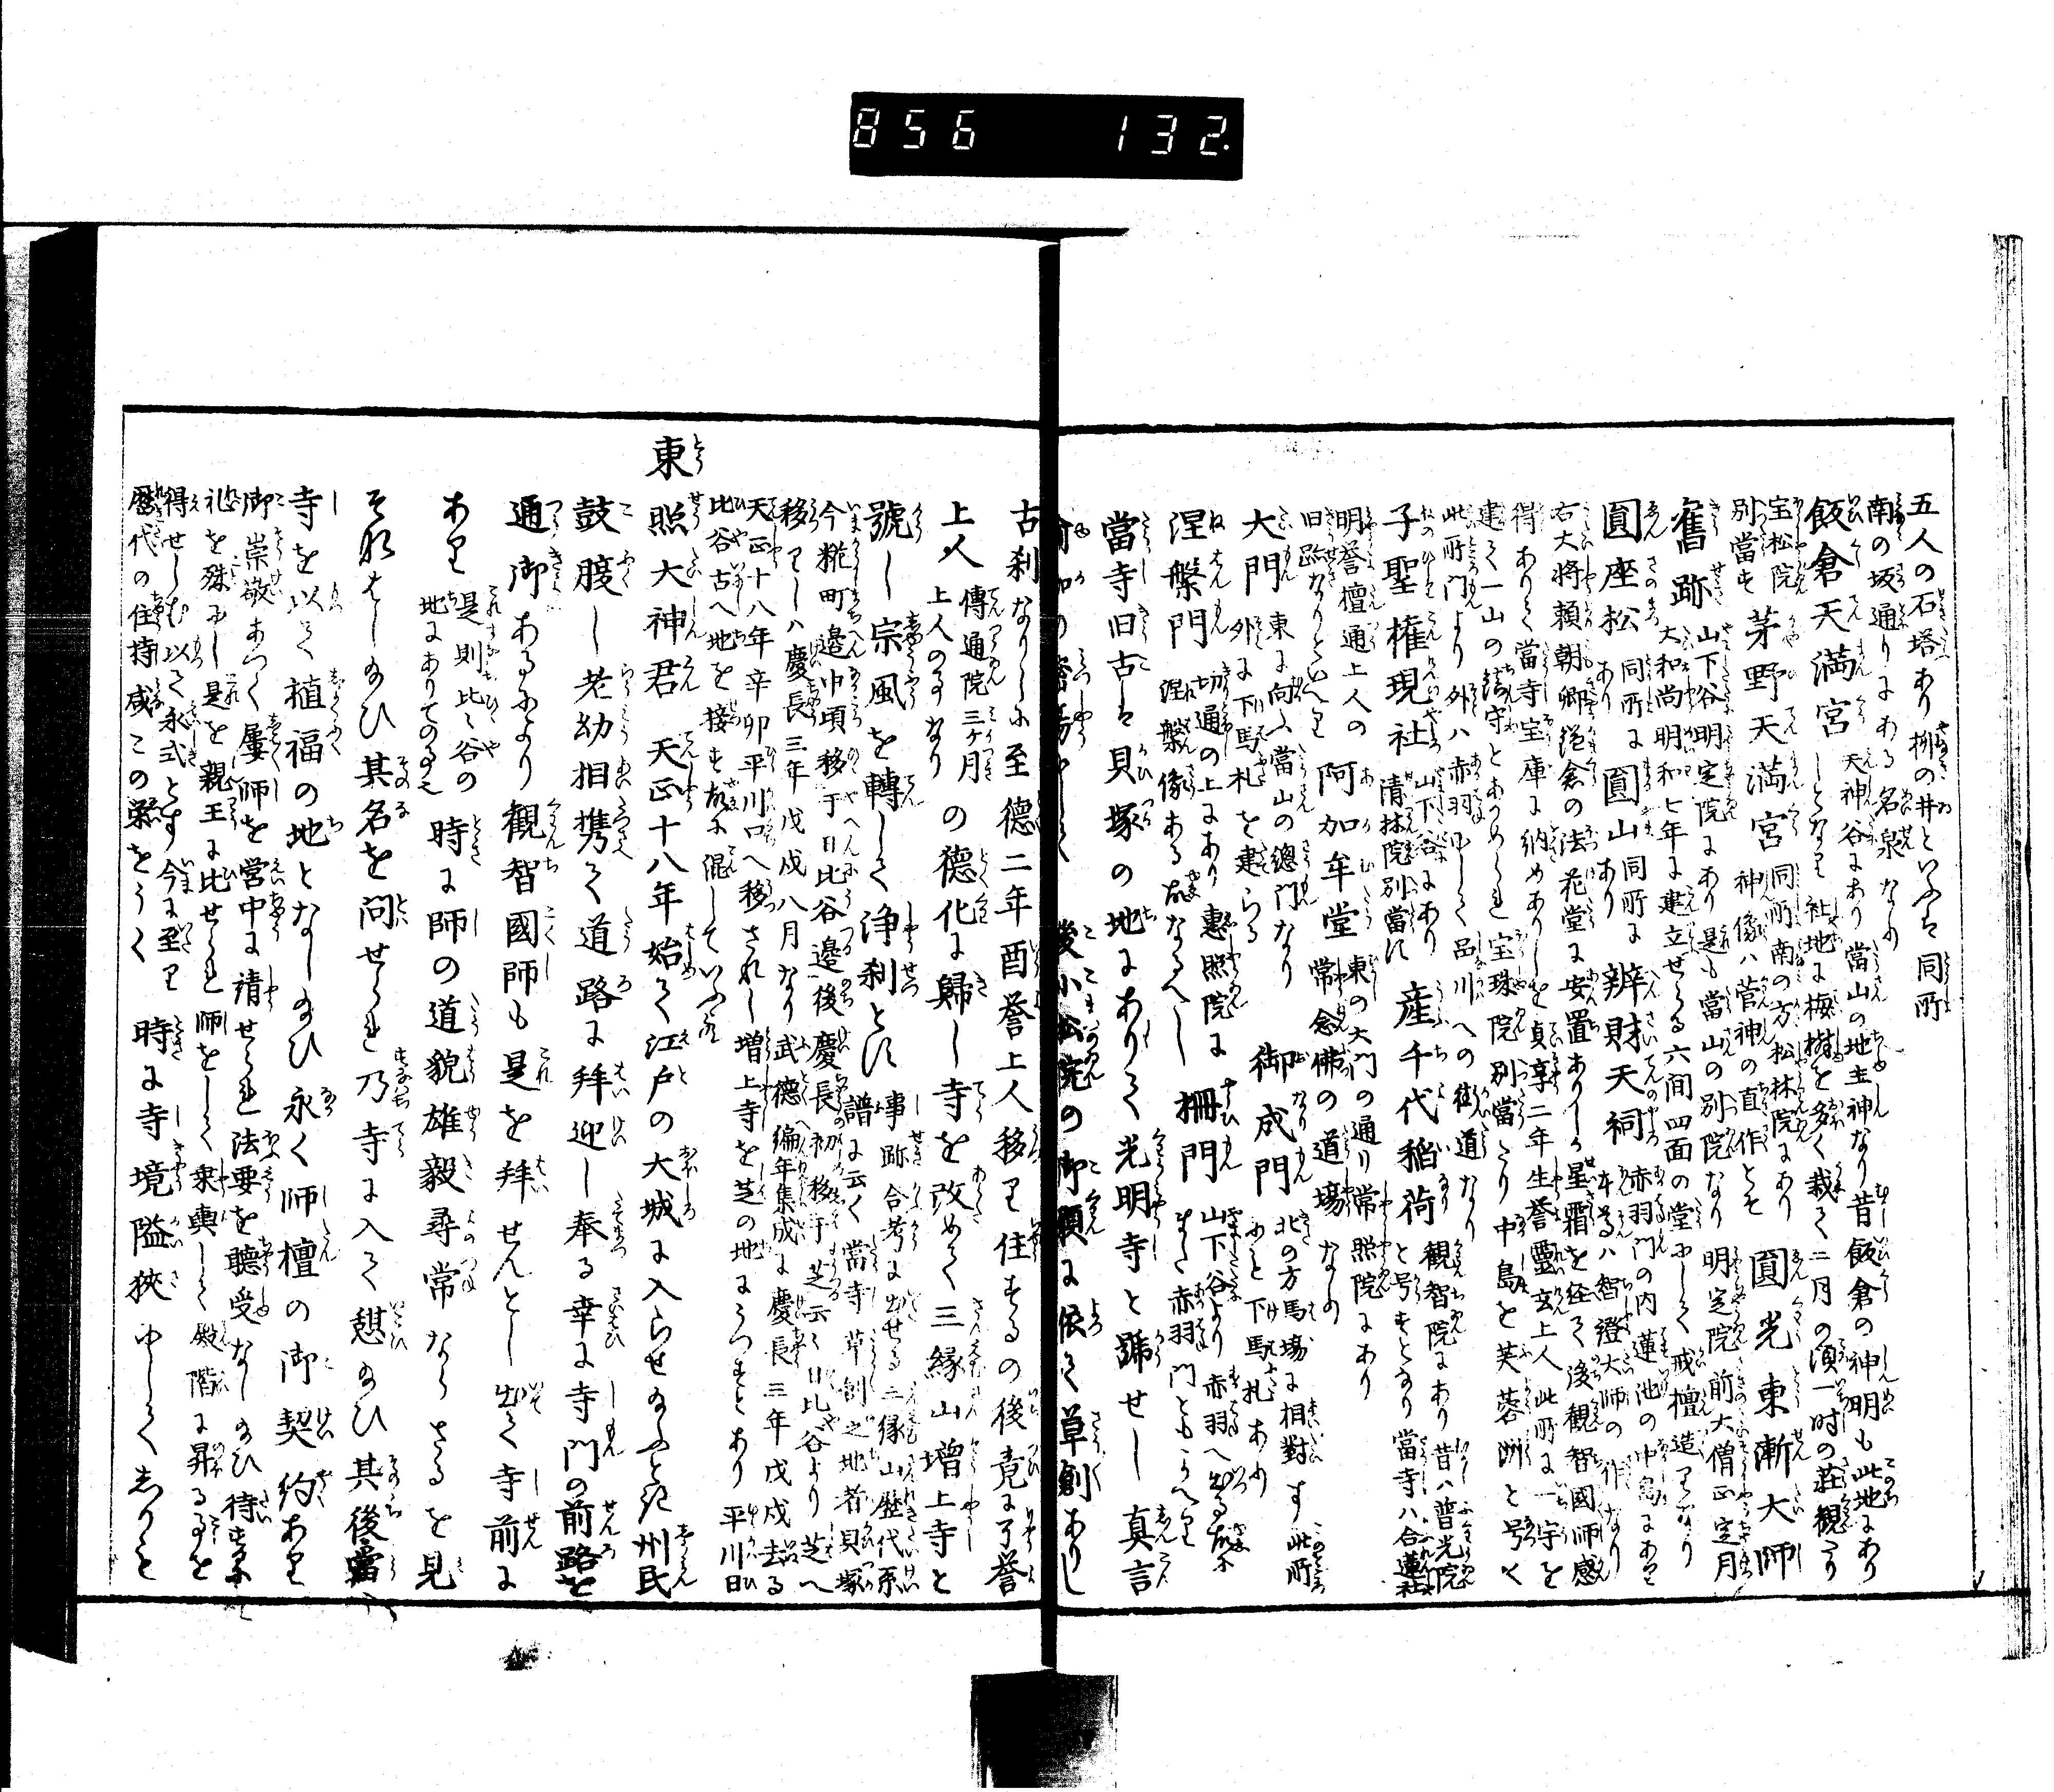 856 132.
五人の石塔あり柳の井といふは同所
南の坂通りにある名泉なり
飯倉天満宮 天神谷にあり當山の地主神なり昔飯倉の神明も此地にあり
しとなり社地に梅樹を多く栽て二月の頃一時の荘観たり
宝松院別當す 茅野天満宮 同所南の方松林院にあり神像ハ菅神の直作とそ 圓光東漸大師
舊跡 山下谷明定院にあり是も當山の別院なり明定院前大僧正定月
大和尚明和七年に建立せらる六間四面の堂にして戒檀造りなり
圓座松 同所にあり 圓山 同所にあり 辨財天祠 赤羽門の内蓮池の中島にあり本尊ハ智證大師の作なり
右大将頼朝卿鎌倉の法花堂に安置ありしか星霜を経て後観智國師感
得ありて當寺宝庫に納めありしを貞享二年生誉靈玄上人此所に一宇を
建て一山の鎮守とあかめられ宝珠院別當たり中島を芙蓉洲と号く
此所門より外ハ赤羽にして品川への街道なり
子聖権現社 山下谷にあり清林院別當に 産千代稲荷 観智院にあり昔ハ普光院と号すとなり當寺ハ合蓮社
明誉檀通上人の旧跡なりといへり 阿加牟堂 東の大門の通り常照院にあり常念佛の道場なり
大門 東に向ふ當山の總門なり外に下馬札を建らる 御成門 北の方馬場に相對す此所にも下馬札あり
涅槃門 切通の上にあり惠照院に涅槃像ある故なるへし 柵門 山下谷より赤羽へ出る故に又赤羽門ともいへり
當寺旧古は貝塚の地にありて光明寺と號せし真言
瑜伽の密場にして後小松院の御願に依て草創ありし
古刹なりしに至德二年酉誉上人移り住するの後竟に了誉
上人 傳通院三ヶ月上人の事なり の德化に歸し寺を改めて三縁山増上寺と
號し宗風を轉して浄刹とす 事跡合考に出せる三縁山歴代系譜に云く當寺草創之地者貝塚
今糀町邊中頃移于日比谷邊後慶長初移于芝云々日比谷より芝へ
移りしハ慶長三年戊戌八月なり武德編年集成に慶長三年戊戌去る
天正十八年辛卯平川口へ移されし増上寺を芝の地にうつすとあり平川日
比谷古へ地を接す故に混していふ歟
東照大神君天正十八年始て江戸の大城に入らせ給ふとき州民
鼓腹し老幼相携て道路に拜迎し奉る幸に寺門の前路を
通御あるにより観智國師も是を拜せんとし出て寺前に
あり 是則比々谷の地にありての事也 時に師の道貌雄毅尋常ならさるを見
そなはし給ひ其名を問せられ乃寺に入て憩給ひ其後當
寺を以て植福の地となし給ひ永く師檀の御契約あり
御崇敬あつく屢師を営中に請せられ法要を聽受なし給ひ待するに
礼を殊にし是を親王に比せられ師をして乗輿して殿階に昇る事を
得せしむ以て永式とす今に至り
歴代の住持咸この榮をうく 時に寺境隘狹にして